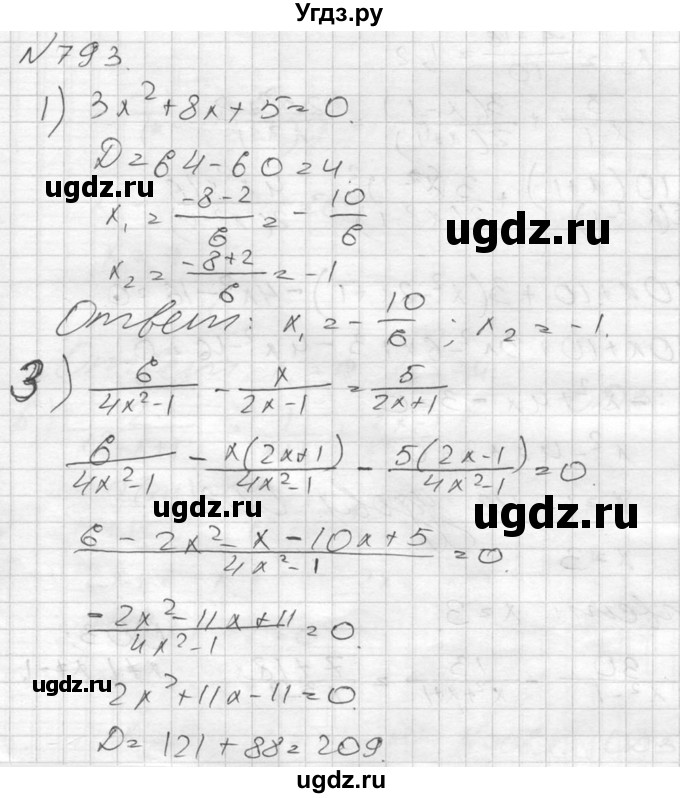 Угдз.ру
N 793.
1) 3x² + 8x + 5 = 0.
D = 64 - 60 = 4.
x₁ = (-8-2)/6 = - 10/6
ugdz.ru
ugdz.ru
x₂ = (-8+2)/6 = -1.
Ответ: x₁ = - 10/6 ; x₂ = -1.
3) 6/(4x²-1) - x/(2x-1) = 5/(2x+1)
ugdz.ru
6/(4x²-1) - x(2x+1)/(4x²-1) - 5(2x-1)/(4x²-1) = 0.
ugdz.ru
ugdz.ru
(6 - 2x² - x - 10x + 5)/(4x²-1) = 0.
(-2x² - 11x + 11)/(4x²-1) = 0.
ugdz.ru
2x² + 11x - 11 = 0.
D = 121 + 88 = 209.
ugdz.ru